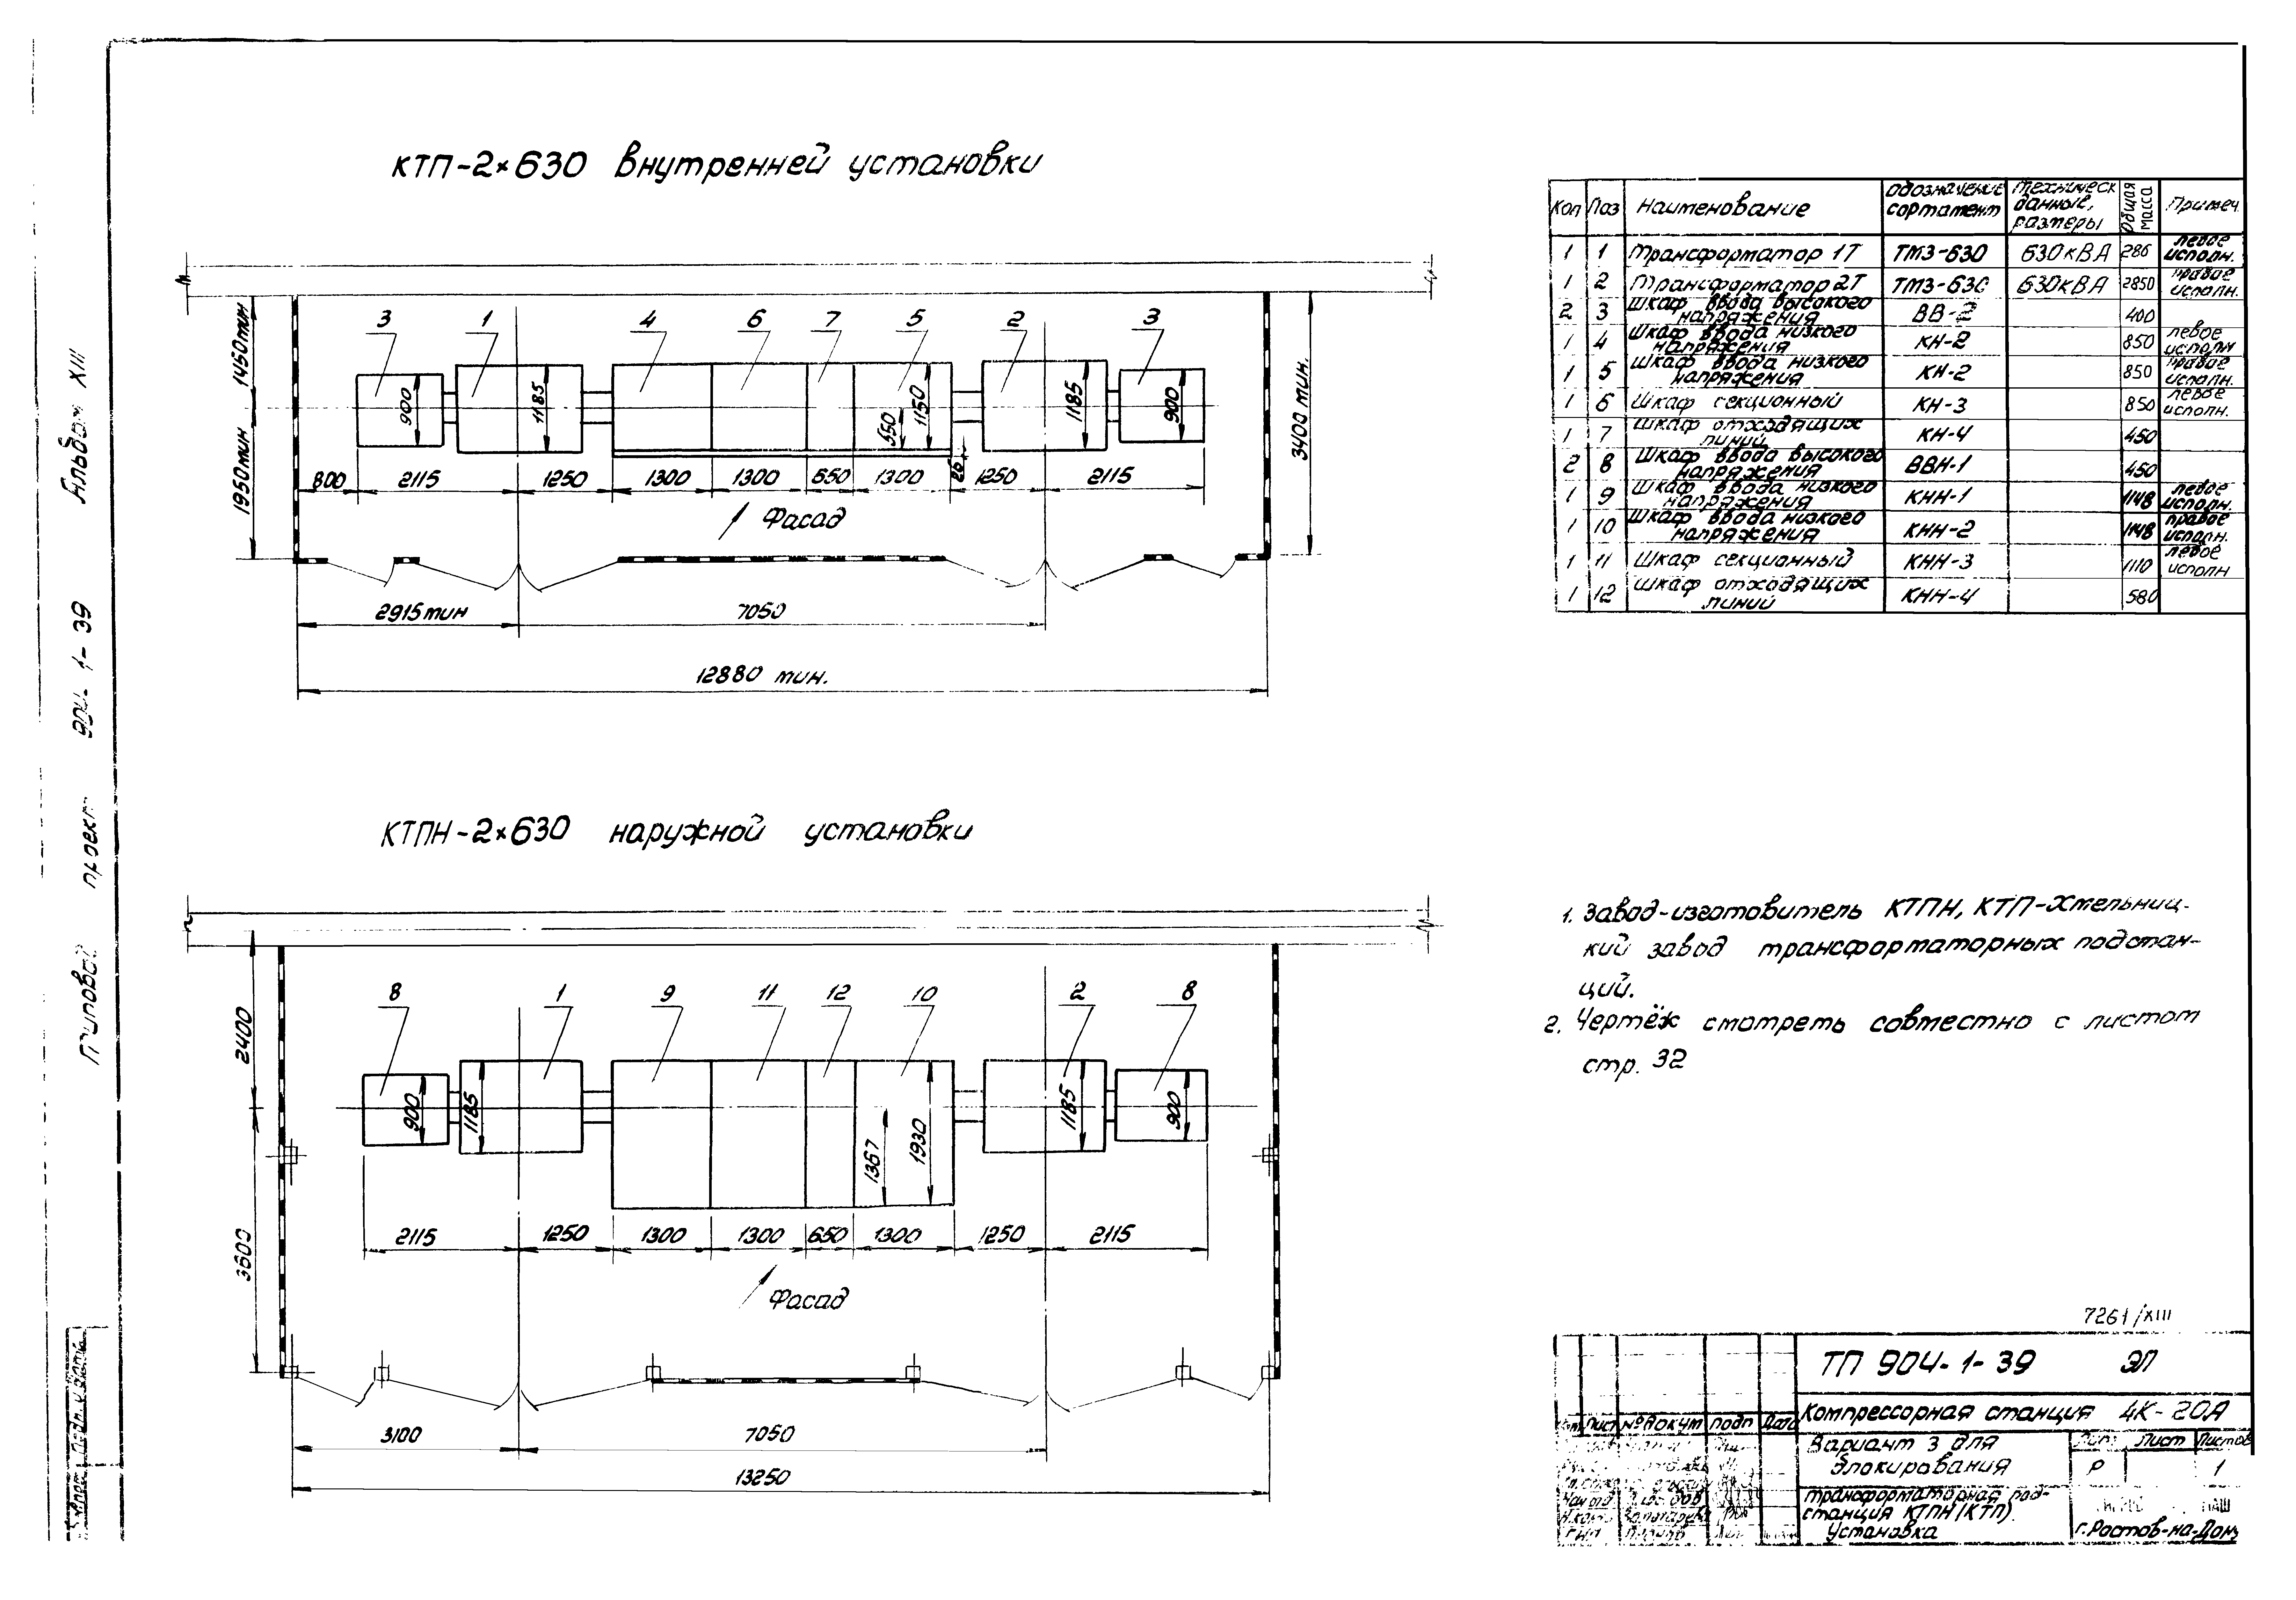 КТП-2×630 внутренней установки
3 1 4 6 7 5 2 3
1450 мин
1950 мин
3400 мин.
900 1185 550 1150 1185 900
26
800 2115 1250 1300 1300 650 1300 1250 2115
Фасад
2915 мин 7050
12880 мин.
КТПН-2×630 наружной установки
8 1 9 11 12 10 2 8
2400
3600
900 1185 1367 1930 1185 900
2115 1250 1300 1300 650 1300 1250 2115
Фасад
3100 7050
13250
Кол Поз Наименование Обозначение сортамент Техническ данные, размеры Общая масса Примеч.
1 1 Трансформатор 1Т ТМЗ-630 630кВА 286 левое исполн.
1 2 Трансформатор 2Т ТМЗ-630 630кВА 2850 правое исполн.
2 3 Шкаф ввода высокого напряжения ВВ-2 400
1 4 Шкаф ввода низкого напряжения КН-2 850 левое исполн
1 5 Шкаф ввода низкого напряжения КН-2 850 правое исполн.
1 6 Шкаф секционный КН-3 850 левое исполн.
1 7 Шкаф отходящих линий КН-4 450
2 8 Шкаф ввода высокого напряжения ВВН-1 450
1 9 Шкаф ввода низкого напряжения КНН-1 1148 левое исполн.
1 10 Шкаф ввода низкого напряжения КНН-2 1148 правое исполн.
1 11 Шкаф секционный КНН-3 1110 левое исполн
1 12 Шкаф отходящих линий КНН-4 580
1. Завод-изготовитель КТПН, КТП-Хмельниц-
кий завод трансформаторных подстан-
ций.
2. Чертёж смотреть совместно с листом
стр. 32
7261/XIII
ТП 904-1-39 ЭП
Компрессорная станция 4К-20А
Лист №докум подп Дата
Вариант 3 для
блокирования
Лит Лист Листов
Р 1
Трансформаторная под-
станция КТПН(КТП).
Установка
г.Ростов-на-Дону
Типовой проект 904-1-39 Альбом XIII
Подп. и дата